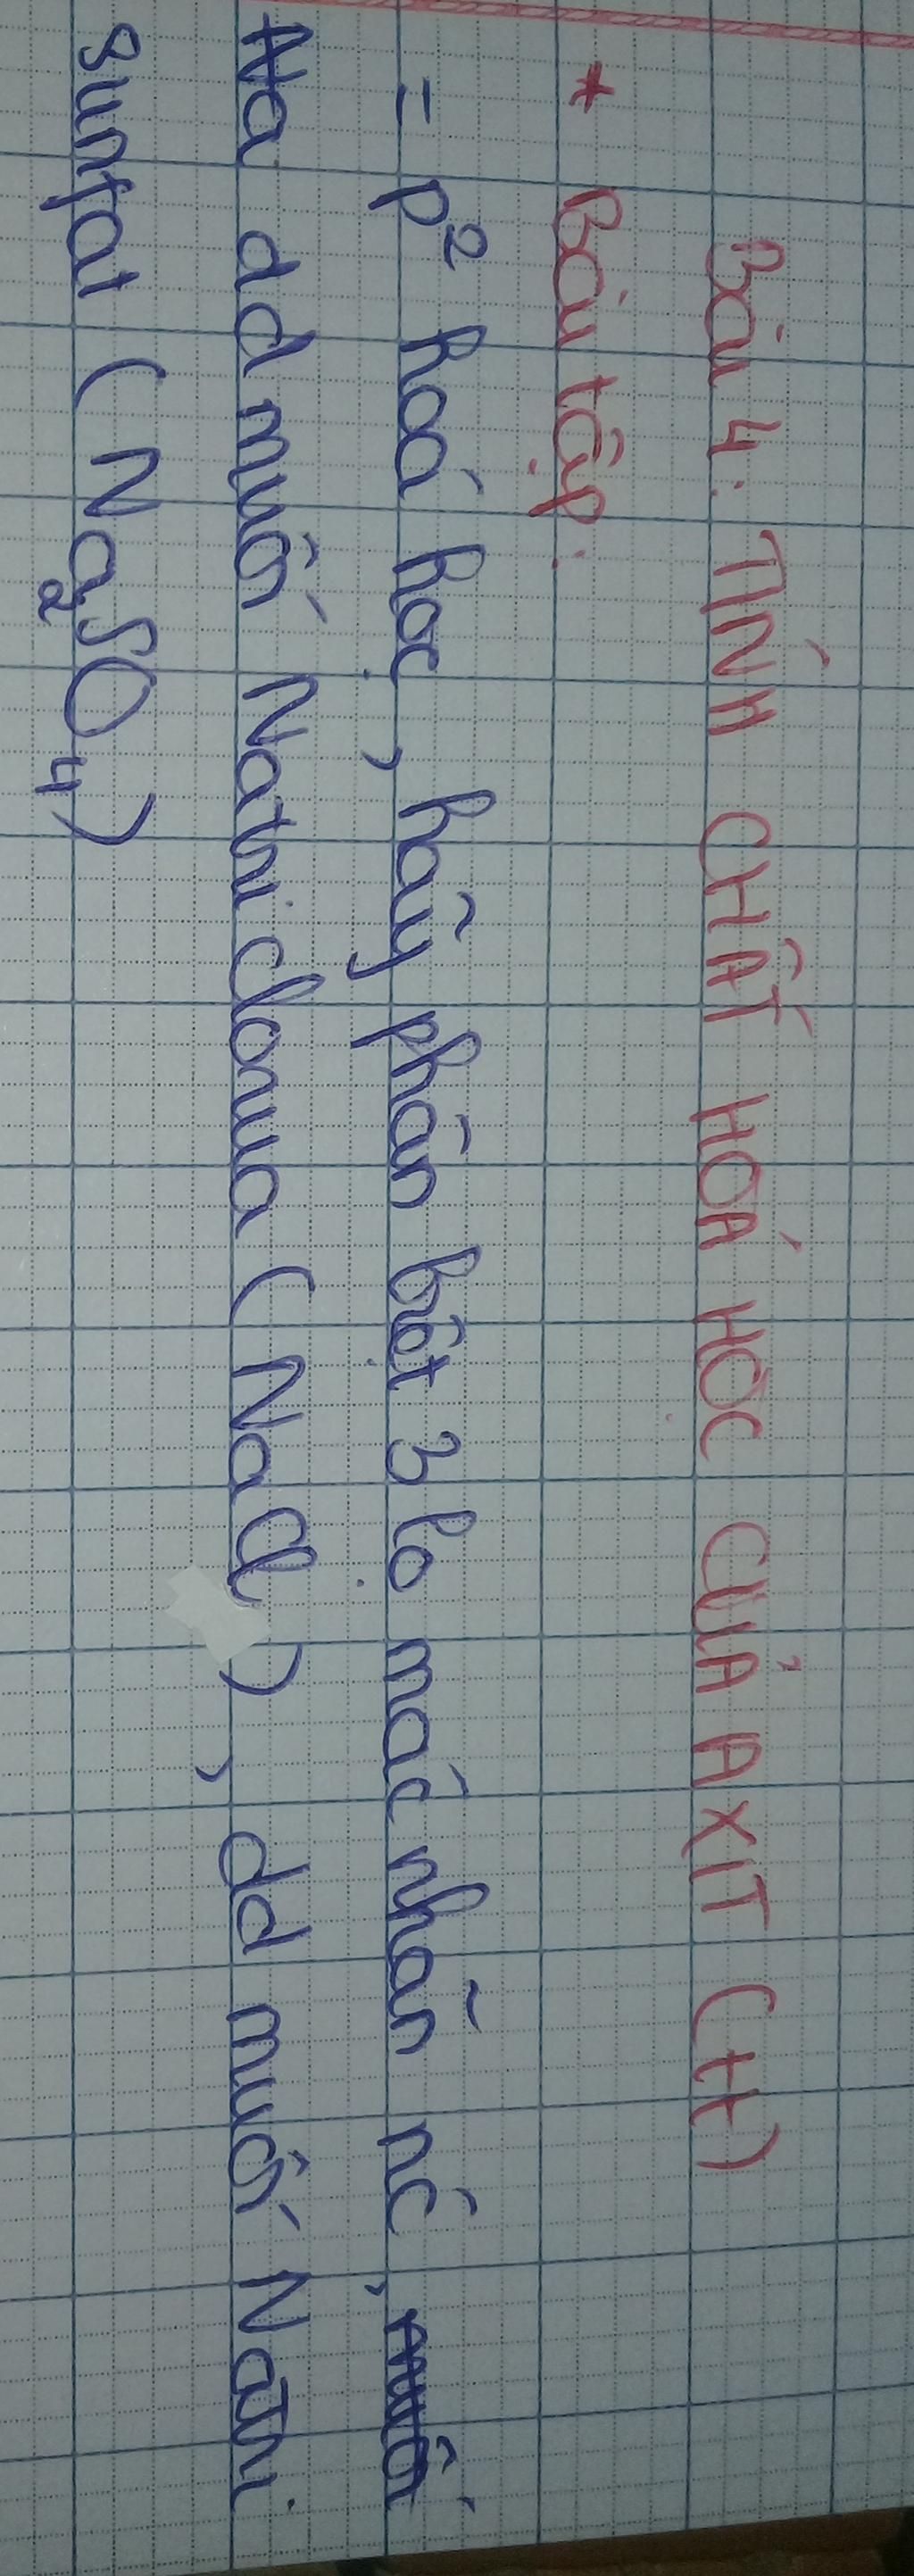 Bài 4: TÍNH CHẤT HOÁ HỌC CỦA AXIT (tt)
* Bài tập:
= p² hoá học, hãy phân biệt 3 lọ mác nhãn nć,
dd muối Natri clorua (NaCl), dd muối Natri
sunfat (Na₂SO₄)